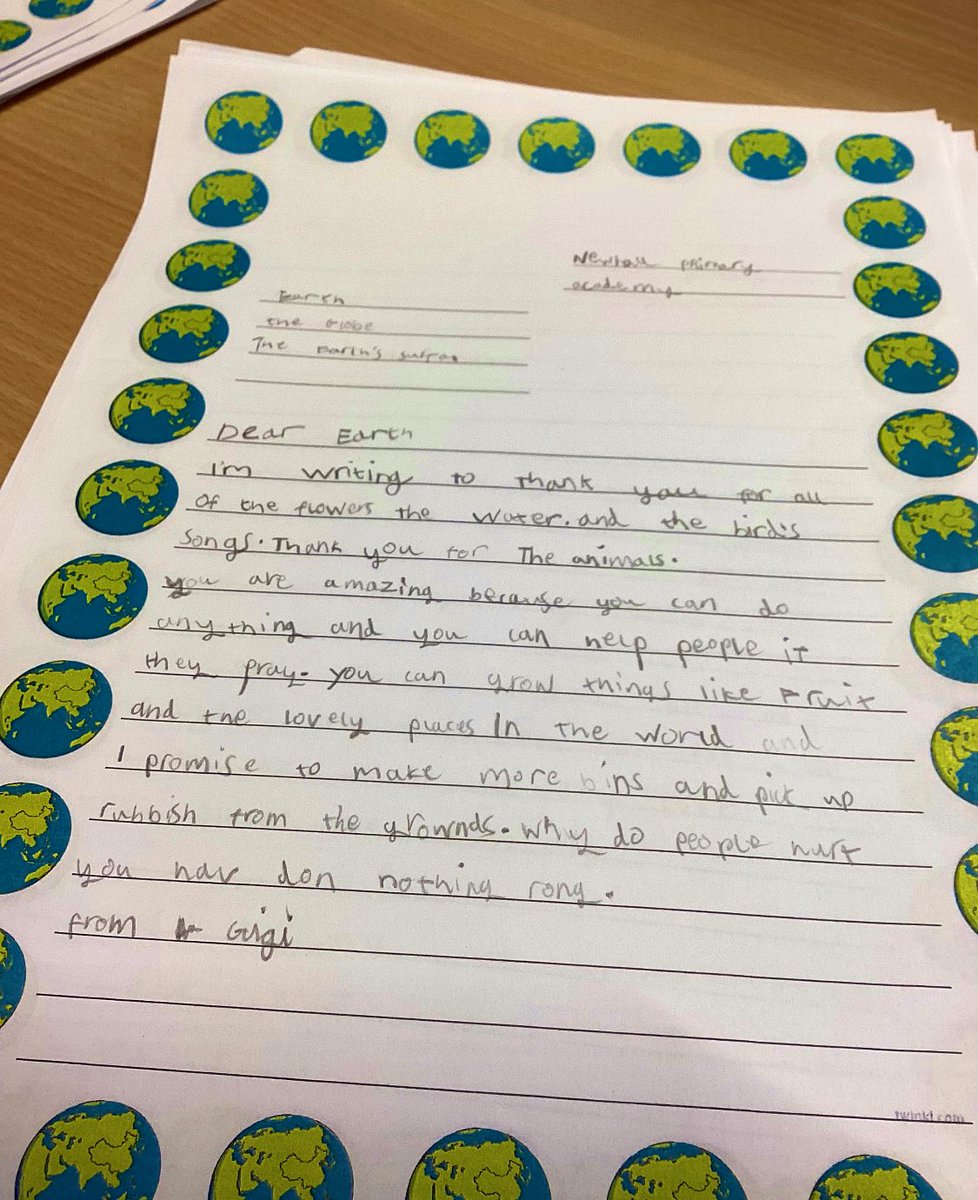 Newhall primary
academy
Earth
the globe
The Earth's surfac
Dear Earth
I'm writing to thank you for all
of the flowers the water. and the bird's
songs. Thank you for The animals.
you are amazing because you can do
anything and you can help people if
they pray. you can grow things like Fruit
and the lovely places In the world and
I promise to make more bins and pick up
rubbish from the grownds. why do people hurt
you hav don nothing rong.
from Gigi
twinkl.com